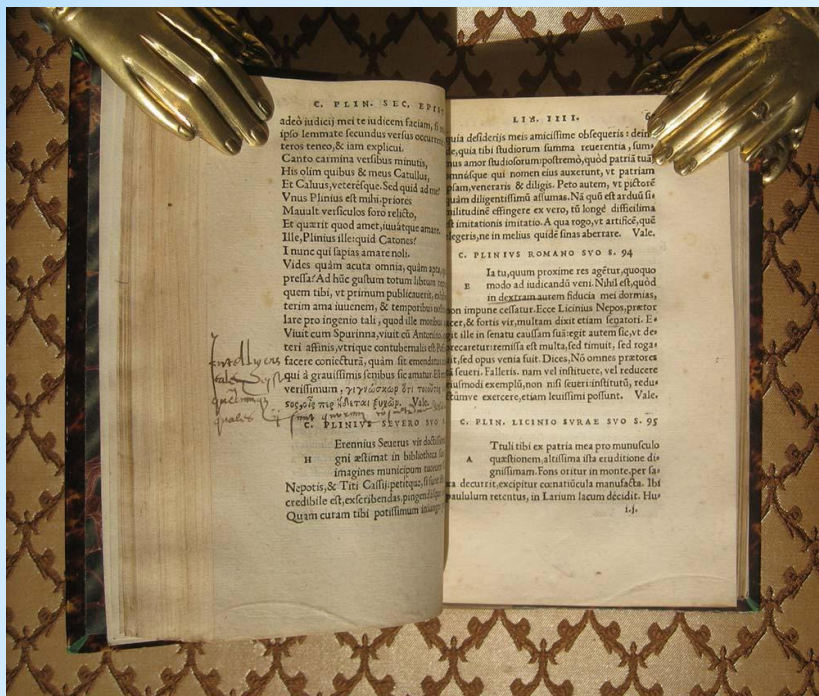 C. PLIN. SEC. EPIST
adeò iudicij mei te iudicem faciam, si
ipso lemmate secundus versus occurrerit
teros teneo, & iam explicui.
Canto carmina versibus minutis,
His olim quibus & meus Catullus,
Et Caluus, veterésque. Sed quid ad me?
Vnus Plinius est mihi. priores
Mauult versiculos foro relicto,
Et quærit quod amet, iuuatque amare.
Ille, Plinius ille: quid Catones?
I nunc qui sapias amare noli.
Vides quàm acuta omnia, quàm apta,
pressa? Ad hũc gustum totum librum
quem tibi, vt primum publicauerit,
terim ama iuuenem, & temporibus
lare pro ingenio tali, quod ille moribus
Viuit cum Spurinna, viuit cũ Antonino
teri affinis, vtrique contubernalis est.
facere coniecturã, quàm sit emendatus
qui à grauissimis senibus sic amatur.
verissimum, γιγνώσκωρ ὅτι τοιοῦτος
σος, οἷς περ ἥδεται ξυχώρ. Vale.
C. PLINIVS SEVERO SVO
Erennius Seuerus vir doctissim
H gni æstimat in bibliotheca
imagines municipum tuorum
Nepotis, & Titi Cassij. petitque, si sunt
credibile est, exscribendas, pingendásque
Quam curam tibi potissimum iniungo
LIB. IIII.
quia desiderijs meis amicissime obsequeris: dein
de, quia tibi studiorum summa reuerentia, sum-
mus amor studiosorum: postremò, quòd patriã tuã
omnésque qui nomen eius auxerunt, vt patriam
ipsam, veneraris & diligis. Peto autem, vt pictorẽ
quàm diligentissimũ assumas. Nã quũ est arduũ si-
militudinẽ effingere ex vero, tũ longè difficilima
est imitationis imitatio. A qua rogo, vt artificẽ, quẽ
elegeris, ne in melius quidẽ sinas aberrare. Vale.
C. PLINIVS ROMANO SVO S. 94
Ia tu, quum proxime res agẽtur, quoquo
E modo ad iudicandũ veni. Nihil est, quòd
in dextram autem fiducia mei dormias,
non impune cessatur. Ecce Licinius Nepos, prætor
acer, & fortis vir, multam dixit etiam senatori. E-
git ille in senatu caussam suã: egit autem sic, vt de-
precaretur: remissa est multa, sed timuit, sed roga-
uit, sed opus venia fuit. Dices, Nõ omnes prætores
tã seueri. Falleris. nam vel instituere, vel reducere
eiusmodi exemplũ, non nisi seueri: institutũ, redu-
ctũmve exercere, etiam leuissimi possunt. Vale.
C. PLIN. LICINIO SVRAE SVO S. 95
Ttuli tibi ex patria mea pro munusculo
A quæstionem, altissima ista eruditione di-
gnissimam. Fons oritur in monte, per sa-
xa decurrit, excipitur cœnatiũcula manufacta. Ibi
paululum retentus, in Larium lacum decidit. Hu-
i.j.